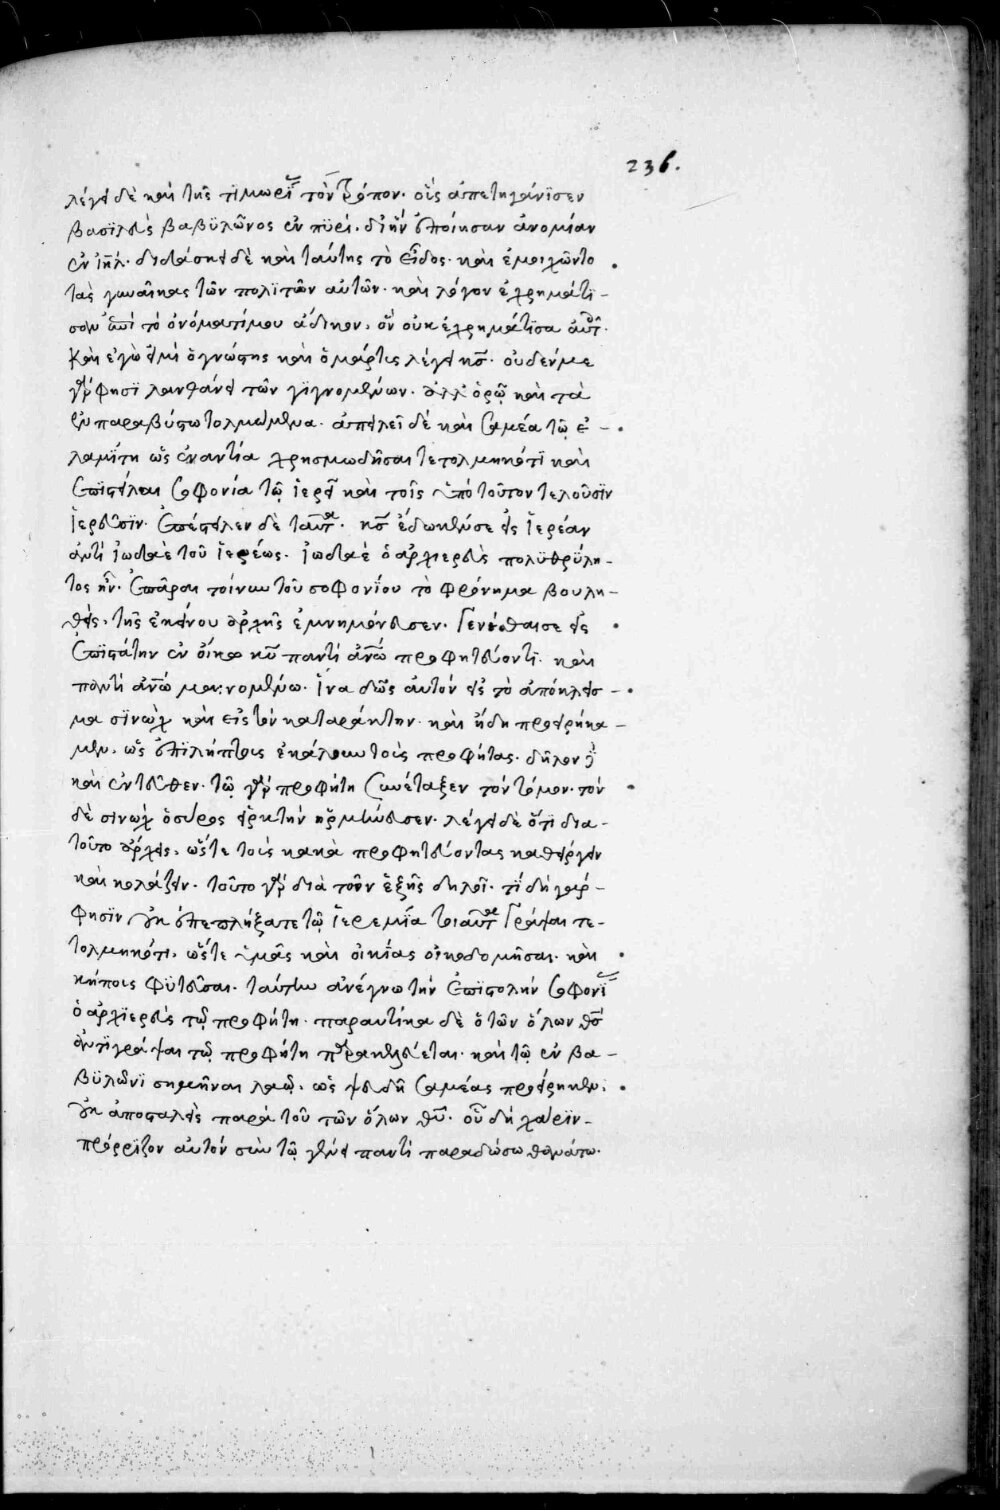 236.
λέγει δὲ καὶ τῆς τιμωρί τὸν τρόπον· οὓς ἀπετηγάνϊσεν
βασϊλεὺς βαβϋλῶνος ἐν πϋρί· δι' ἣν ἐποίησαν ἀνομίαν
ἐν ἰηλ· διδάσκει δὲ καὶ ταύτης τὸ εἶδος· καὶ ἐμοιχῶντο
τὰς γυναῖκας τῶν πολϊτῶν αὐτῶν· καὶ λόγον ἐχρημάτϊ-
σαν ἐπὶ τὸ ὀνόματί μου ἄδικον, ὃν οὐκ ἐχρημάτϊσα αὐτ·
καὶ ἐγὼ εἰμὶ ὁ γνώστης καὶ ὁ μάρτις λέγει κς· οὐδέν με
γάρ φησϊ λανθάνει τῶν γϊγνομένων· ἀλλ' ὁρῶ καὶ τὰ
ἐν παραβύστω τολμώμενα· ἀπειλεῖ δὲ καὶ σαμέα τῶ ἐ-
λαμίτη ὡς ἐναντία χρησμωδῆσαι τετολμηκότϊ καὶ
ἐπϊστεῖλαι σοφονία τῶ ἱερεῖ καὶ τοῖς ὑπὸ τοῦτον τελοῦσϊν
ἱερεῦσϊν· ἐπέστειλεν δὲ ταῦτ· κς ἔδωκέν σε εἰς ἱερέαν
ἀντὶ ἰωδαὲ τοῦ ἱερέως· ἰωδαὲ ὁ ἀρχιερεὺς πολϋθρϋλη-
τος ἦν· ἐπᾶραι τοίνυν τοῦ σοφονίου τὸ φρόνημα βουλη-
θεὶς, τῆς ἐκείνου ἀρχῆς ἐμνημόνευσεν· γενέσθαι σε εἰς
ἐπϊστάτην ἐν οἴκω κυ παντὶ ἀνω προφητεύοντϊ· καὶ
παντὶ ἀνω μαινομένω· ἵνα δῶς αὐτὸν εἰς τὸ ἀπόκλεισ-
μα σϊνὼχ καὶ εἰς τὸν καταράκτην· καὶ ἤδη προειρήκα-
μεν, ὡς ἐπϊλήπτους ἐκάλουν τοὺς προφήτας· δῆλον
καὶ ἐντεῦθεν· τῶ γὰρ προφήτη συνέταξεν τὸν τόμον· τὸν
δὲ σινὼχ ὁ σύρος εἱρκτὴν ἡρμήνευσεν· λέγει δὲ ὅτϊ δια-
τοῦτο ἄρχεις, ὥστε τοὺς κακὰ προφητεύοντας καθείργειν
καὶ κολάζειν· τοῦτο γὰρ διὰ τῶν ἑξῆς δηλοῖ· τί δὴ γάρ-
φησϊν οὐκ ἐπεπλήξατε τῶ ἱερεμία τοιαῦτ γράψαι τε-
τολμηκότι, ὥστε ὑμᾶς καὶ οἰκίας οἰκοδομῆσαι· καὶ
κήποις φϋτεῦσαι· ταύτην ἀνέγνω τὴν ἐπϊστολὴν σοφονί
ὁ ἀρχϊερεὺς τῶ προφήτη· παραυτίκα δὲ ὁ τῶν ὅλων θς
ἀντιγράψαι τῶ προφήτη παρακελεύεται· καὶ τῶ ἐν βα-
βϋλῶνϊ σημῆναι λαῶ· ὡς ψευδῆ σαμέας προείρηκεν,
οὐκ ἀποσταλεὶς παρὰ τοῦ τῶν ὅλων θυ· οὗ δὴ χάρϊν-
πρόρρϊζον αὐτὸν σὺν τῶ γένει παντὶ παραδώσω θανάτω·